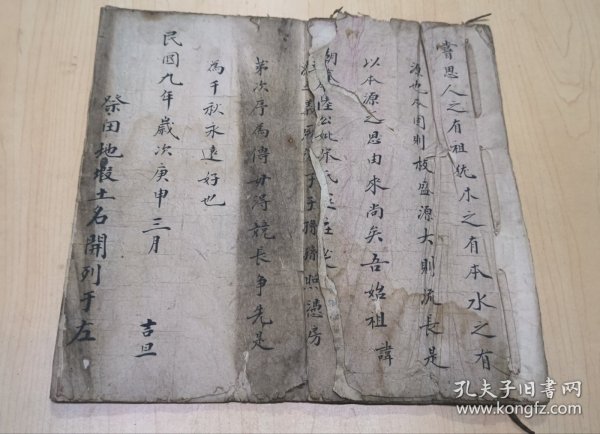 嘗思人之有祖犹木之有本水之有
源也本固則枝盛源大則流長是
以本源之恩由来尚矣吾始祖諱
陸公妣宋氏
子子孫孫照憑房
第次序為傳毋得競長争先是
為千秋永遠好也
民囯九年歲次庚申三月 吉旦
祭田地塅土名開列于左
孔夫子旧书网
www.kongfz.com